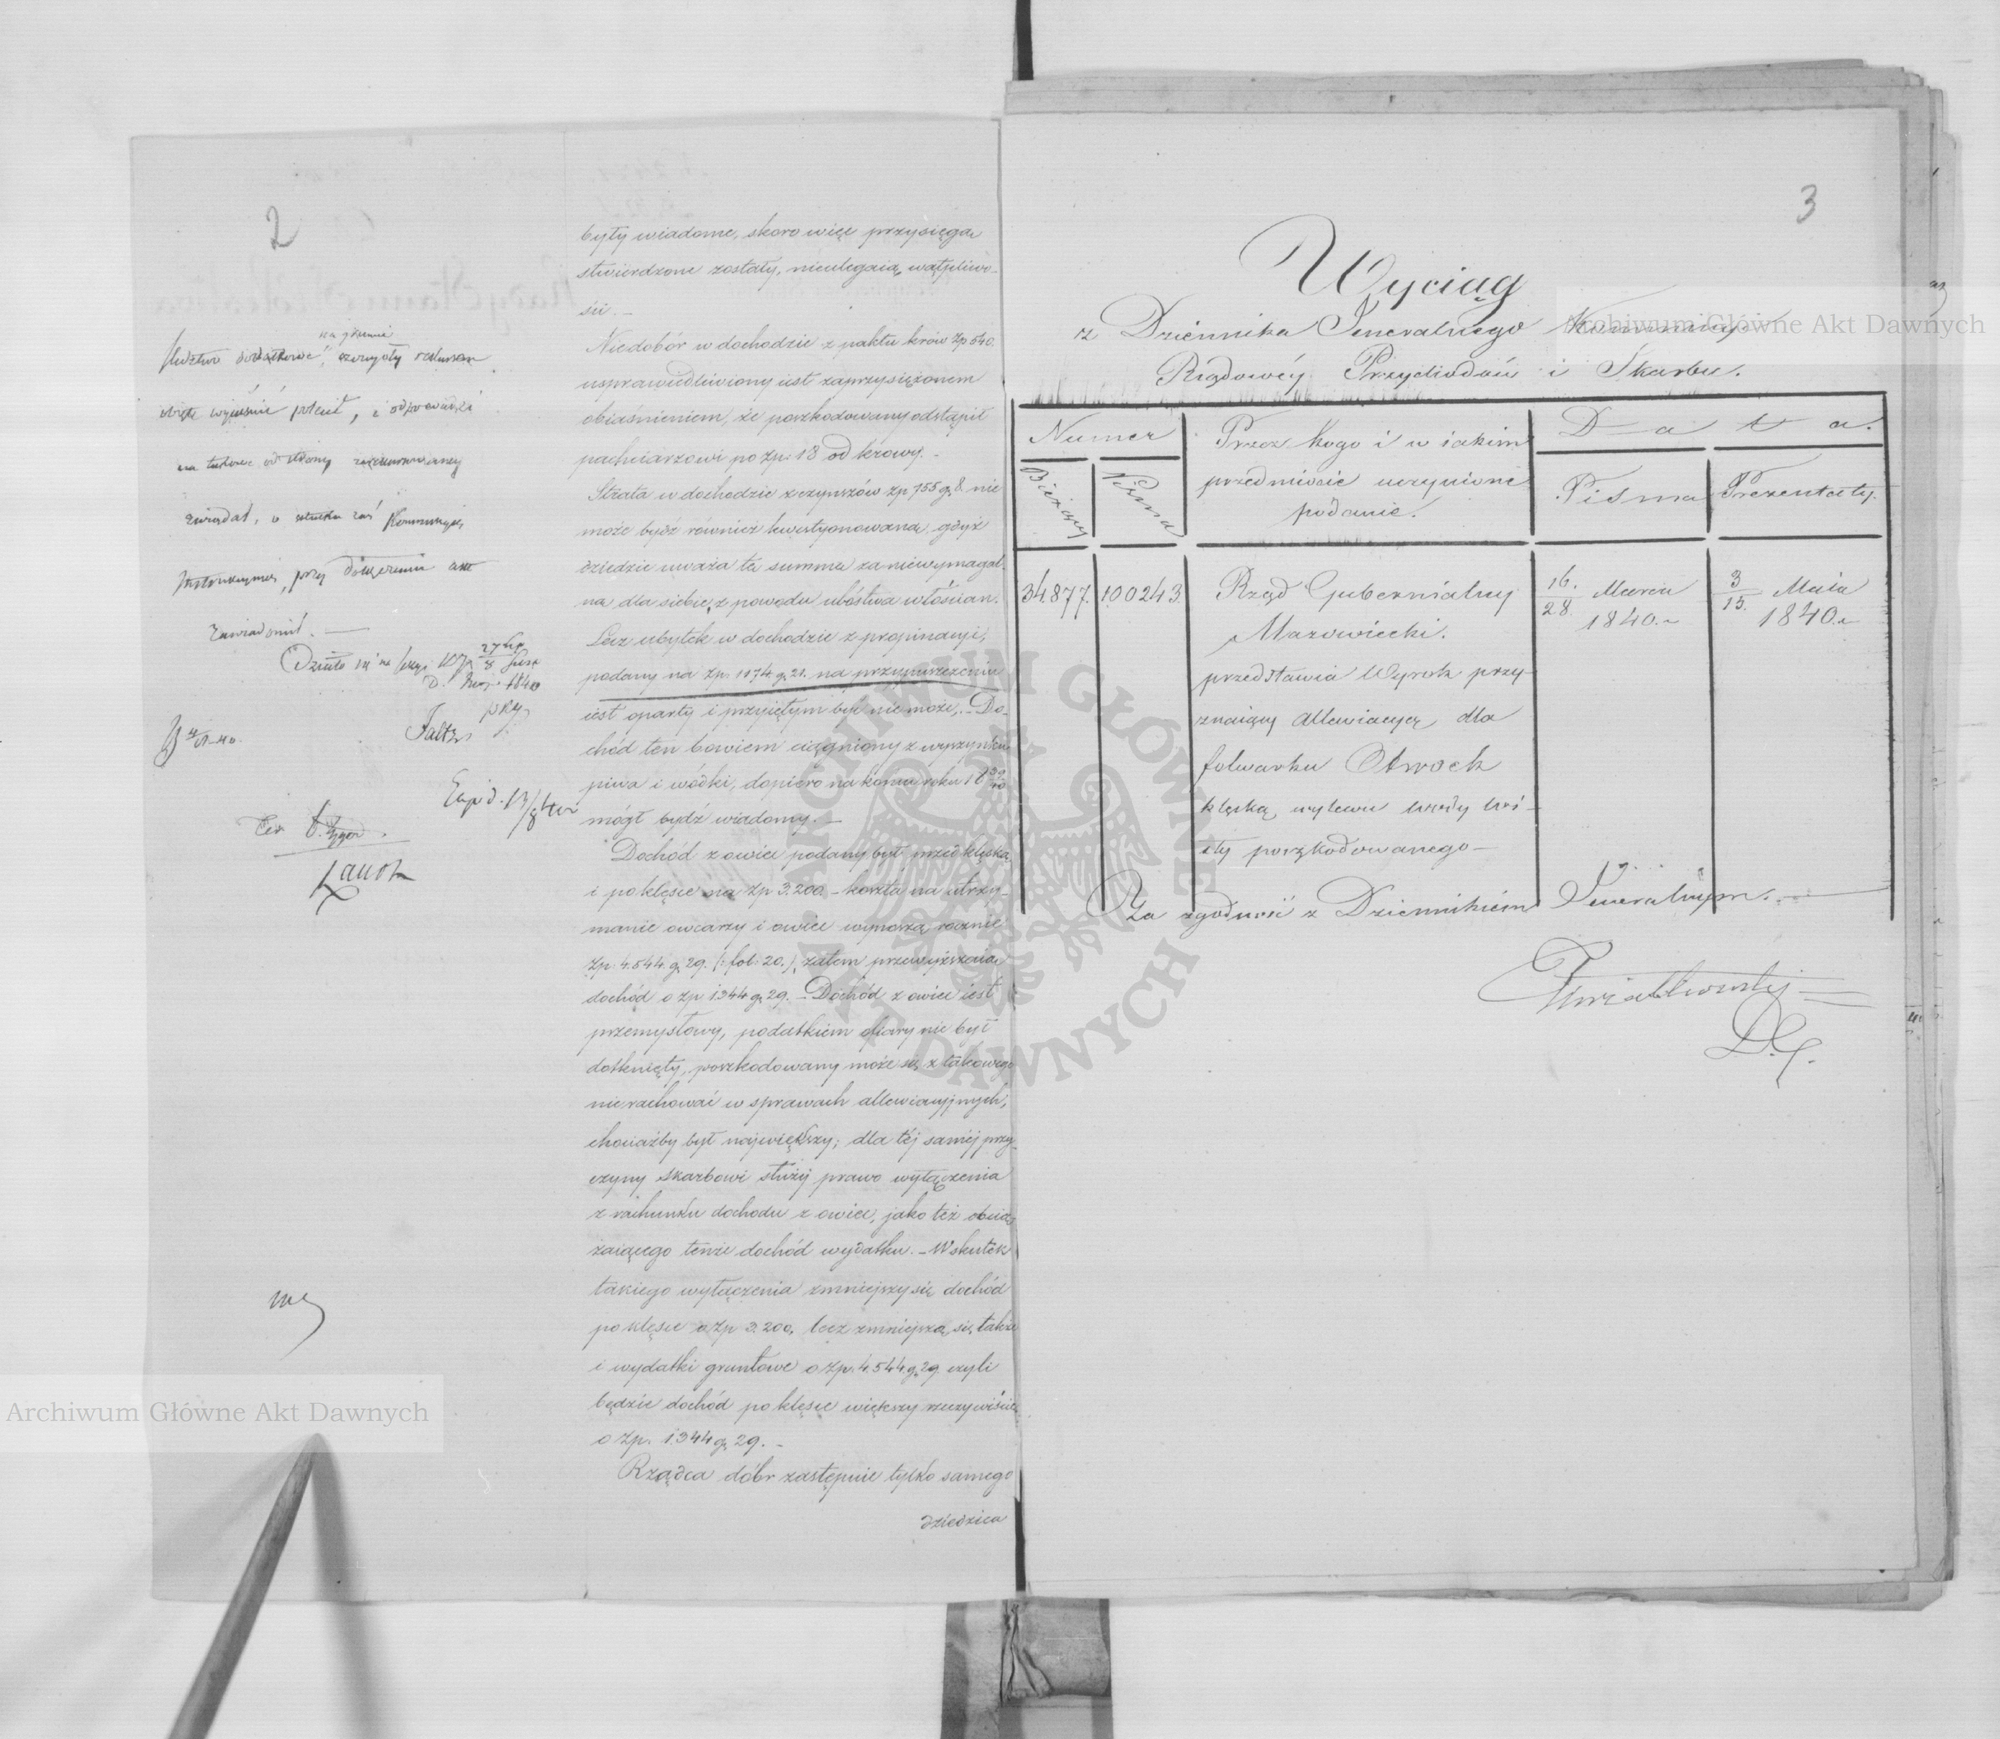 2
na gruncie
wyjaśnić polecił, i odpowiedzi
na takowe od strony
zażądał, o skutku zaś Kommissyę
przy dołączeniu akt
Zawiadomił. —
były wiadome, skoro więc przysięgą
stwierdzone zostały, nieulegaią wątpliwo-
ści. —
Niedobór w dochodzie z paktu krów Zp 540.
usprawiedliwiony iest zaprzysiężonem
obiaśnieniem, że poszkodowany odstąpił
pachciarzowi po Zp: 18 od krowy. -
Strata w dochodzie z czynszów Zp 155 g. 8 nie
może bydź również kwestyonowaną, gdyż
dziedzic uważa tę summę za niewymagal-
na dla siebie, z powodu ubóstwa włościan.
Lecz ubytek w dochodzie z propinacyi,
podany na Zp. 1174 g. 21. na przypuszczeniu
iest oparty i przyiętym być nie może. - Do-
chód ten bowiem ciągniony z wyszynku
piwa i wódki, dopiero na końcu roku 18 39/40
mógł bydź wiadomy. —
Dochód z owiec podany był przed klęską
i po klęsce na Zp 3.200. - koszta na utrzy-
manie owczarzy i owiec wynoszą rocznie
Zp. 4.544 g. 29. (: fol: 20.), zatem przewyższaią
dochód o Zp 1344 g. 29. - Dochód z owiec iest
przemysłowy, podatkiem ofiary nie był
dotknięty, poszkodowany może się z takowego
nie rachować w sprawach allewiacyjnych,
chociażby był największy; dla téj saméj przy-
czyny skarbowi służy prawo wyłączenia
z rachunku dochodu z owiec, jako też obcią-
żaiącego tenże dochód wydatku. - W skutek
takiego wyłączenia zmniejszy się dochód
po klęsce o Zp 3.200. lecz zmniejszą się także
i wydatki gruntowe o Zp. 4.544 g. 29. czyli
będzie dochód po klęsce większy rzeczywiście
o Zp. 1.344 g. 29. -
Rządca dóbr zastępuie tylko samego
dziedzica
3
Wyciąg
z Dziennika Jeneralnego Kommissyi
Rządowéj Przychodów i Skarbu.
Numer
Bieżący
Pisma
Przez kogo i w iakim
przedmiocie uczynione
podanie.
Data.
Pisma
Prezentaty.
34877.
100243.
Rząd Gubernialny
Mazowiecki.
przedstawia Wyrok przy-
znaiący allewiacyę dla
folwarku Otwock
klęską wylewu wody Wi-
sły poszkodowanego —
16./28 Marca
1840. -
3/15. Maia
1840. -
Za zgodność z Dziennikiem Jeneralnym. —
Kwiatkowski
D. J.
Archiwum Główne Akt Dawnych
Archiwum Główne Akt Dawnych
ARCHIWUM GŁÓWNE AKT DAWNYCH